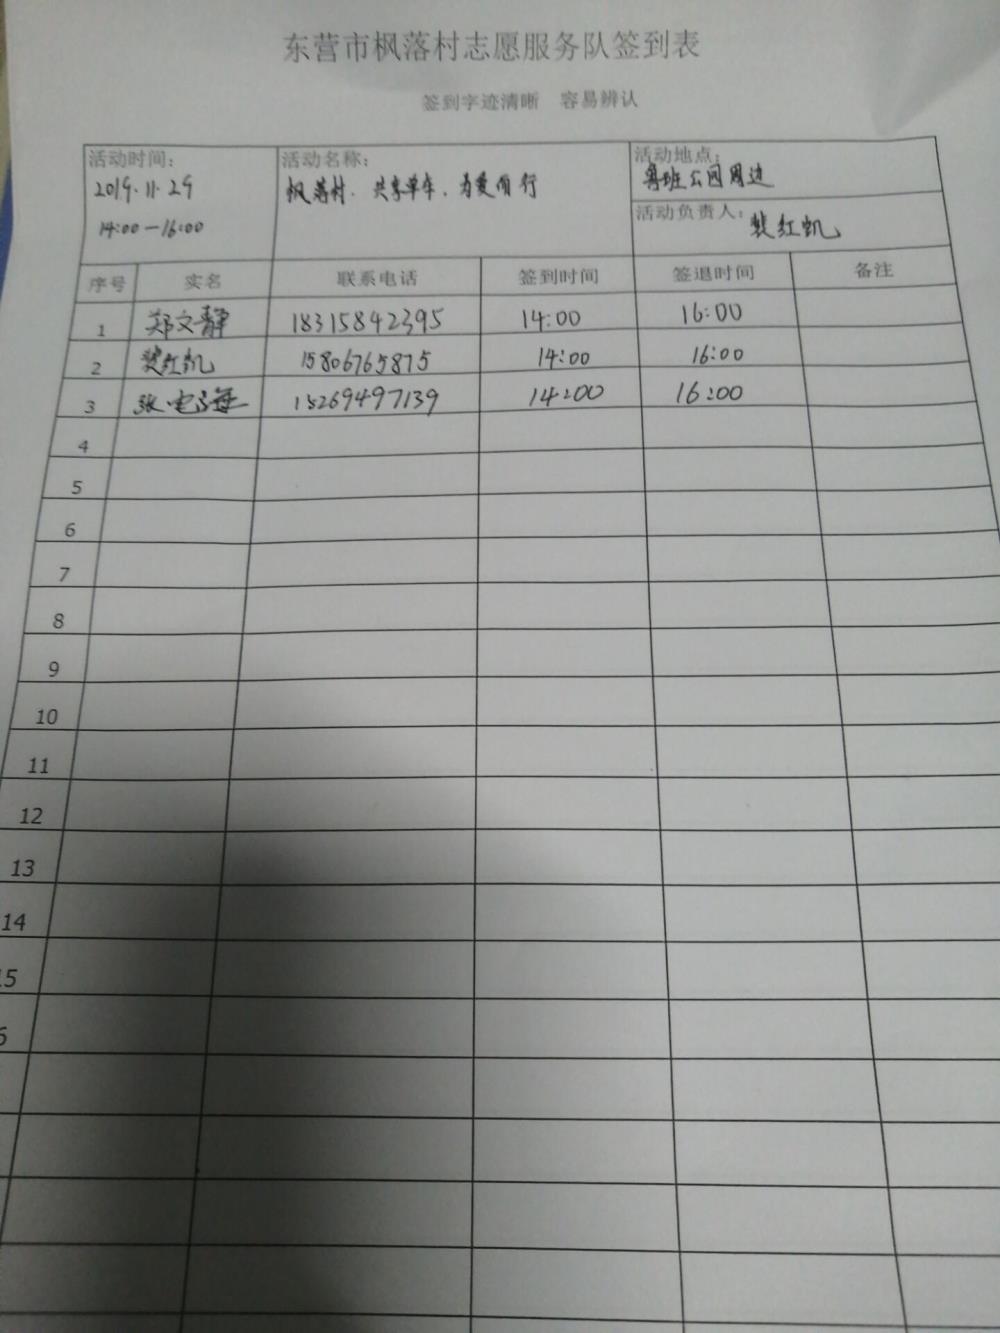 东营市枫落村志愿服务队签到表
签到字迹清晰 容易辨认
活动时间: 活动名称: 活动地点:
2019.11.29 枫落村.共享单车.为爱前行 鲁班公园周边
14:00-16:00 活动负责人: 裴红凯
序号 实名 联系电话 签到时间 签退时间 备注
1 郑文静 18315842395 14:00 16:00
2 裴红凯 15806765875 14:00 16:00
3 张 15269497139 14:00 16:00
4
5
6
7
8
9
10
11
12
13
14
15
6